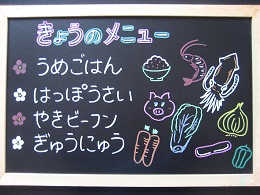 きょうのメニュー
うめごはん
はっぽうさい
やきビーフン
ぎゅうにゅう